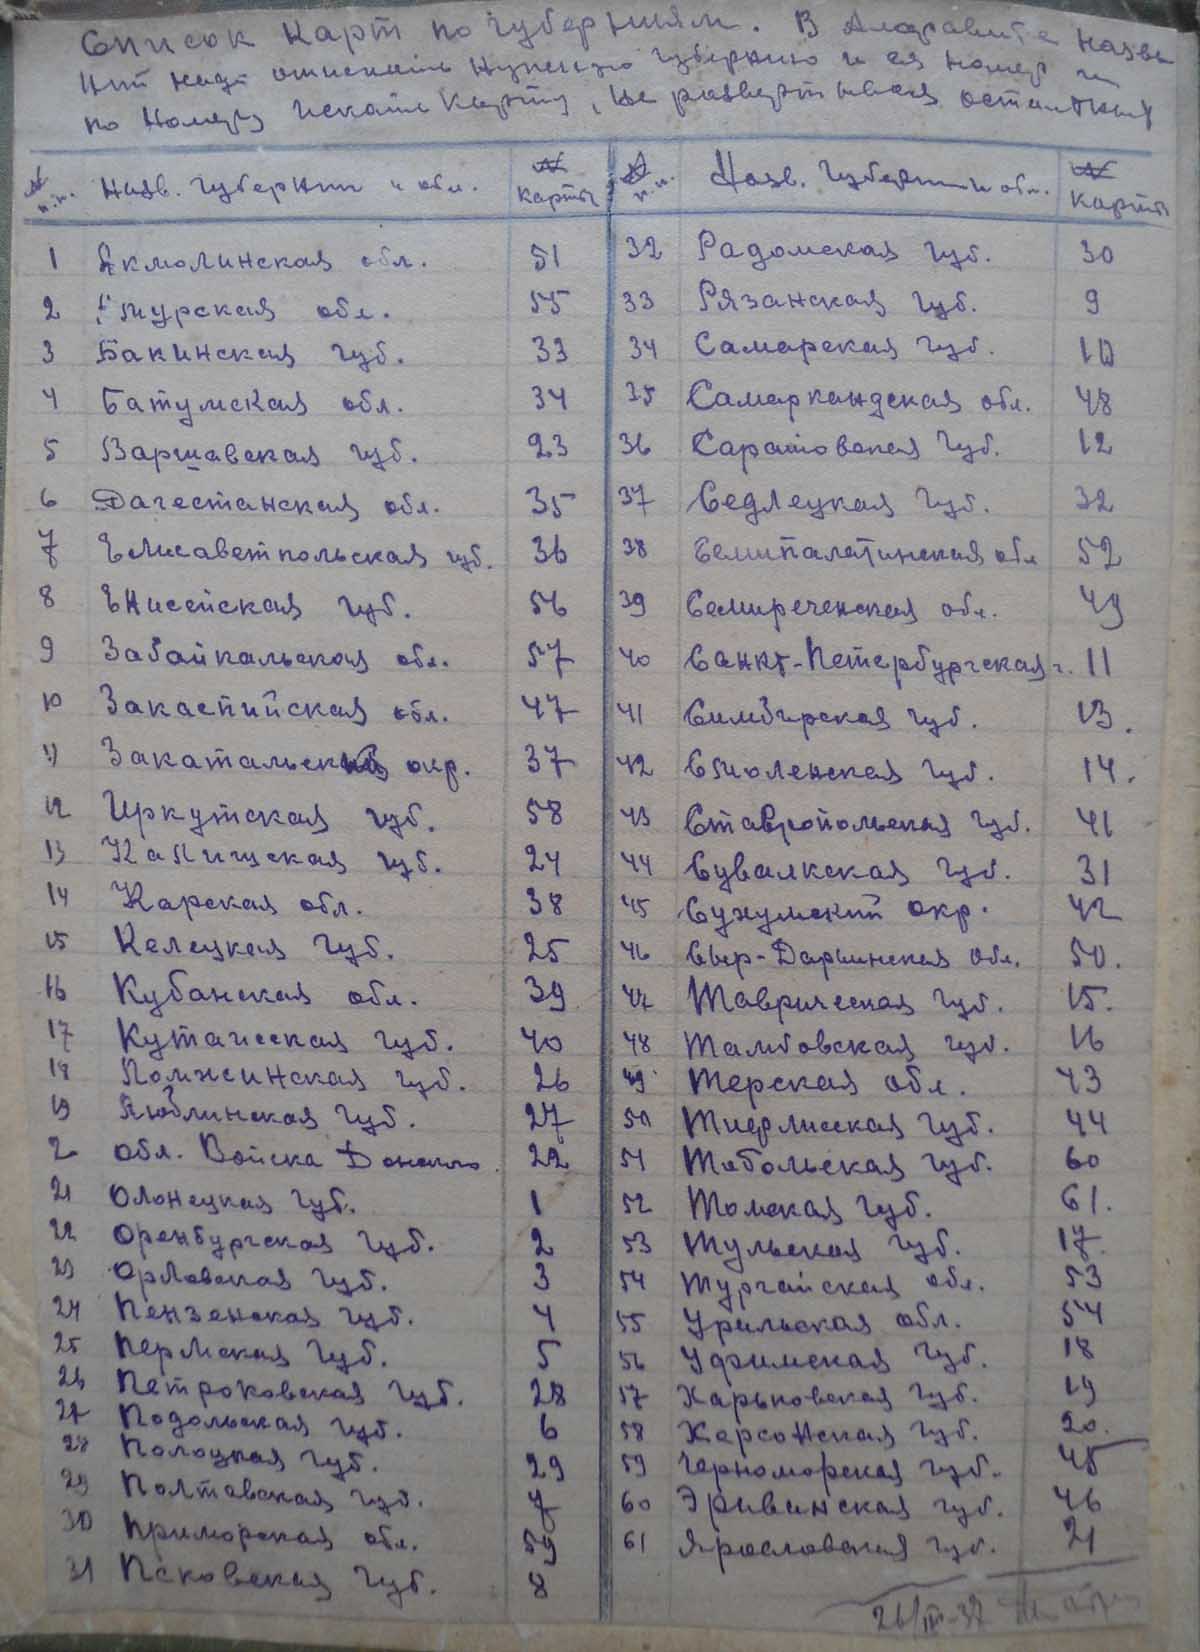 Список карт по губерниям. В Алфавите назва
ний надо отыскать нужную губернию и ея номер и
по номеру искать карту, не развертывая остальных
№ п.п. Назв. губернии и обл. № карты № п.п. Назв. губернии и обл. № карты
1 Акмолинская обл. 51 32 Радомская губ. 30
2 Амурская обл. 55 33 Рязанская губ. 9
3 Бакинская губ. 33 34 Самарская губ. 10
4 Батумская обл. 34 35 Самаркандская обл. 48
5 Варшавская губ. 23 36 Саратовская губ. 12
6 Дагестанская обл. 35 37 Седлецкая губ. 32
7 Елисаветпольская губ. 36 38 Семипалатинская обл 52
8 Енисейская губ. 56 39 Семиреченская обл. 49
9 Забайкальская обл. 57 40 Санкт-Петербургская г. 11
10 Закаспийская обл. 47 41 Симбирская губ. 13.
11 Закатальский окр. 37 42 Смоленская губ. 14.
12 Иркутская губ. 58 43 Ставропольская губ. 41
13 Калишская губ. 24 44 Сувалкская губ. 31
14 Карская обл. 38 45 Сухумский окр. 42
15 Келецкая губ. 25 46 Сыр-Дарьинская обл. 50.
16 Кубанская обл. 39 47 Таврическая губ. 15.
17 Кутаисская губ. 40 48 Тамбовская губ. 16
18 Ломжинская губ. 26 49 Терская обл. 43
19 Люблинская губ. 27 50 Тифлисская губ. 44
2 обл. Войска Донского. 22 51 Тобольская губ. 60
21 Олонецкая губ. 1 52 Томская губ. 61.
22 Оренбургская губ. 2 53 Тульская губ. 17.
23 Орловская губ. 3 54 Тургайская обл. 53
24 Пензенская губ. 4 55 Уральская обл. 54
25 Пермская губ. 5 56 Уфимская губ. 18
26 Петроковская губ. 28 57 Харьковская губ. 19
27 Подольская губ. 6 58 Херсонская губ. 20.
28 Полоцкая губ. 29 59 Черноморская губ. 45
29 Полтавская губ. 7 60 Эриванская губ. 46
30 Приморская обл. 59 61 Ярославская губ. 21
31 Псковская губ. 8
26/III-37